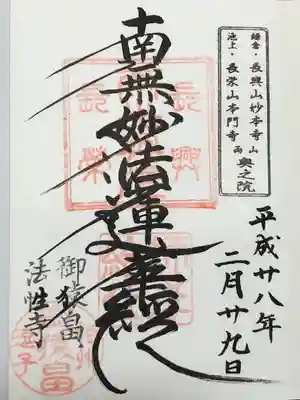 鎌倉・長興山妙本寺
池上・長栄山本門寺
両山奥之院
平成廿八年
二月廿九日
南無妙法蓮華経
長興
長榮
御猿畠
法性寺